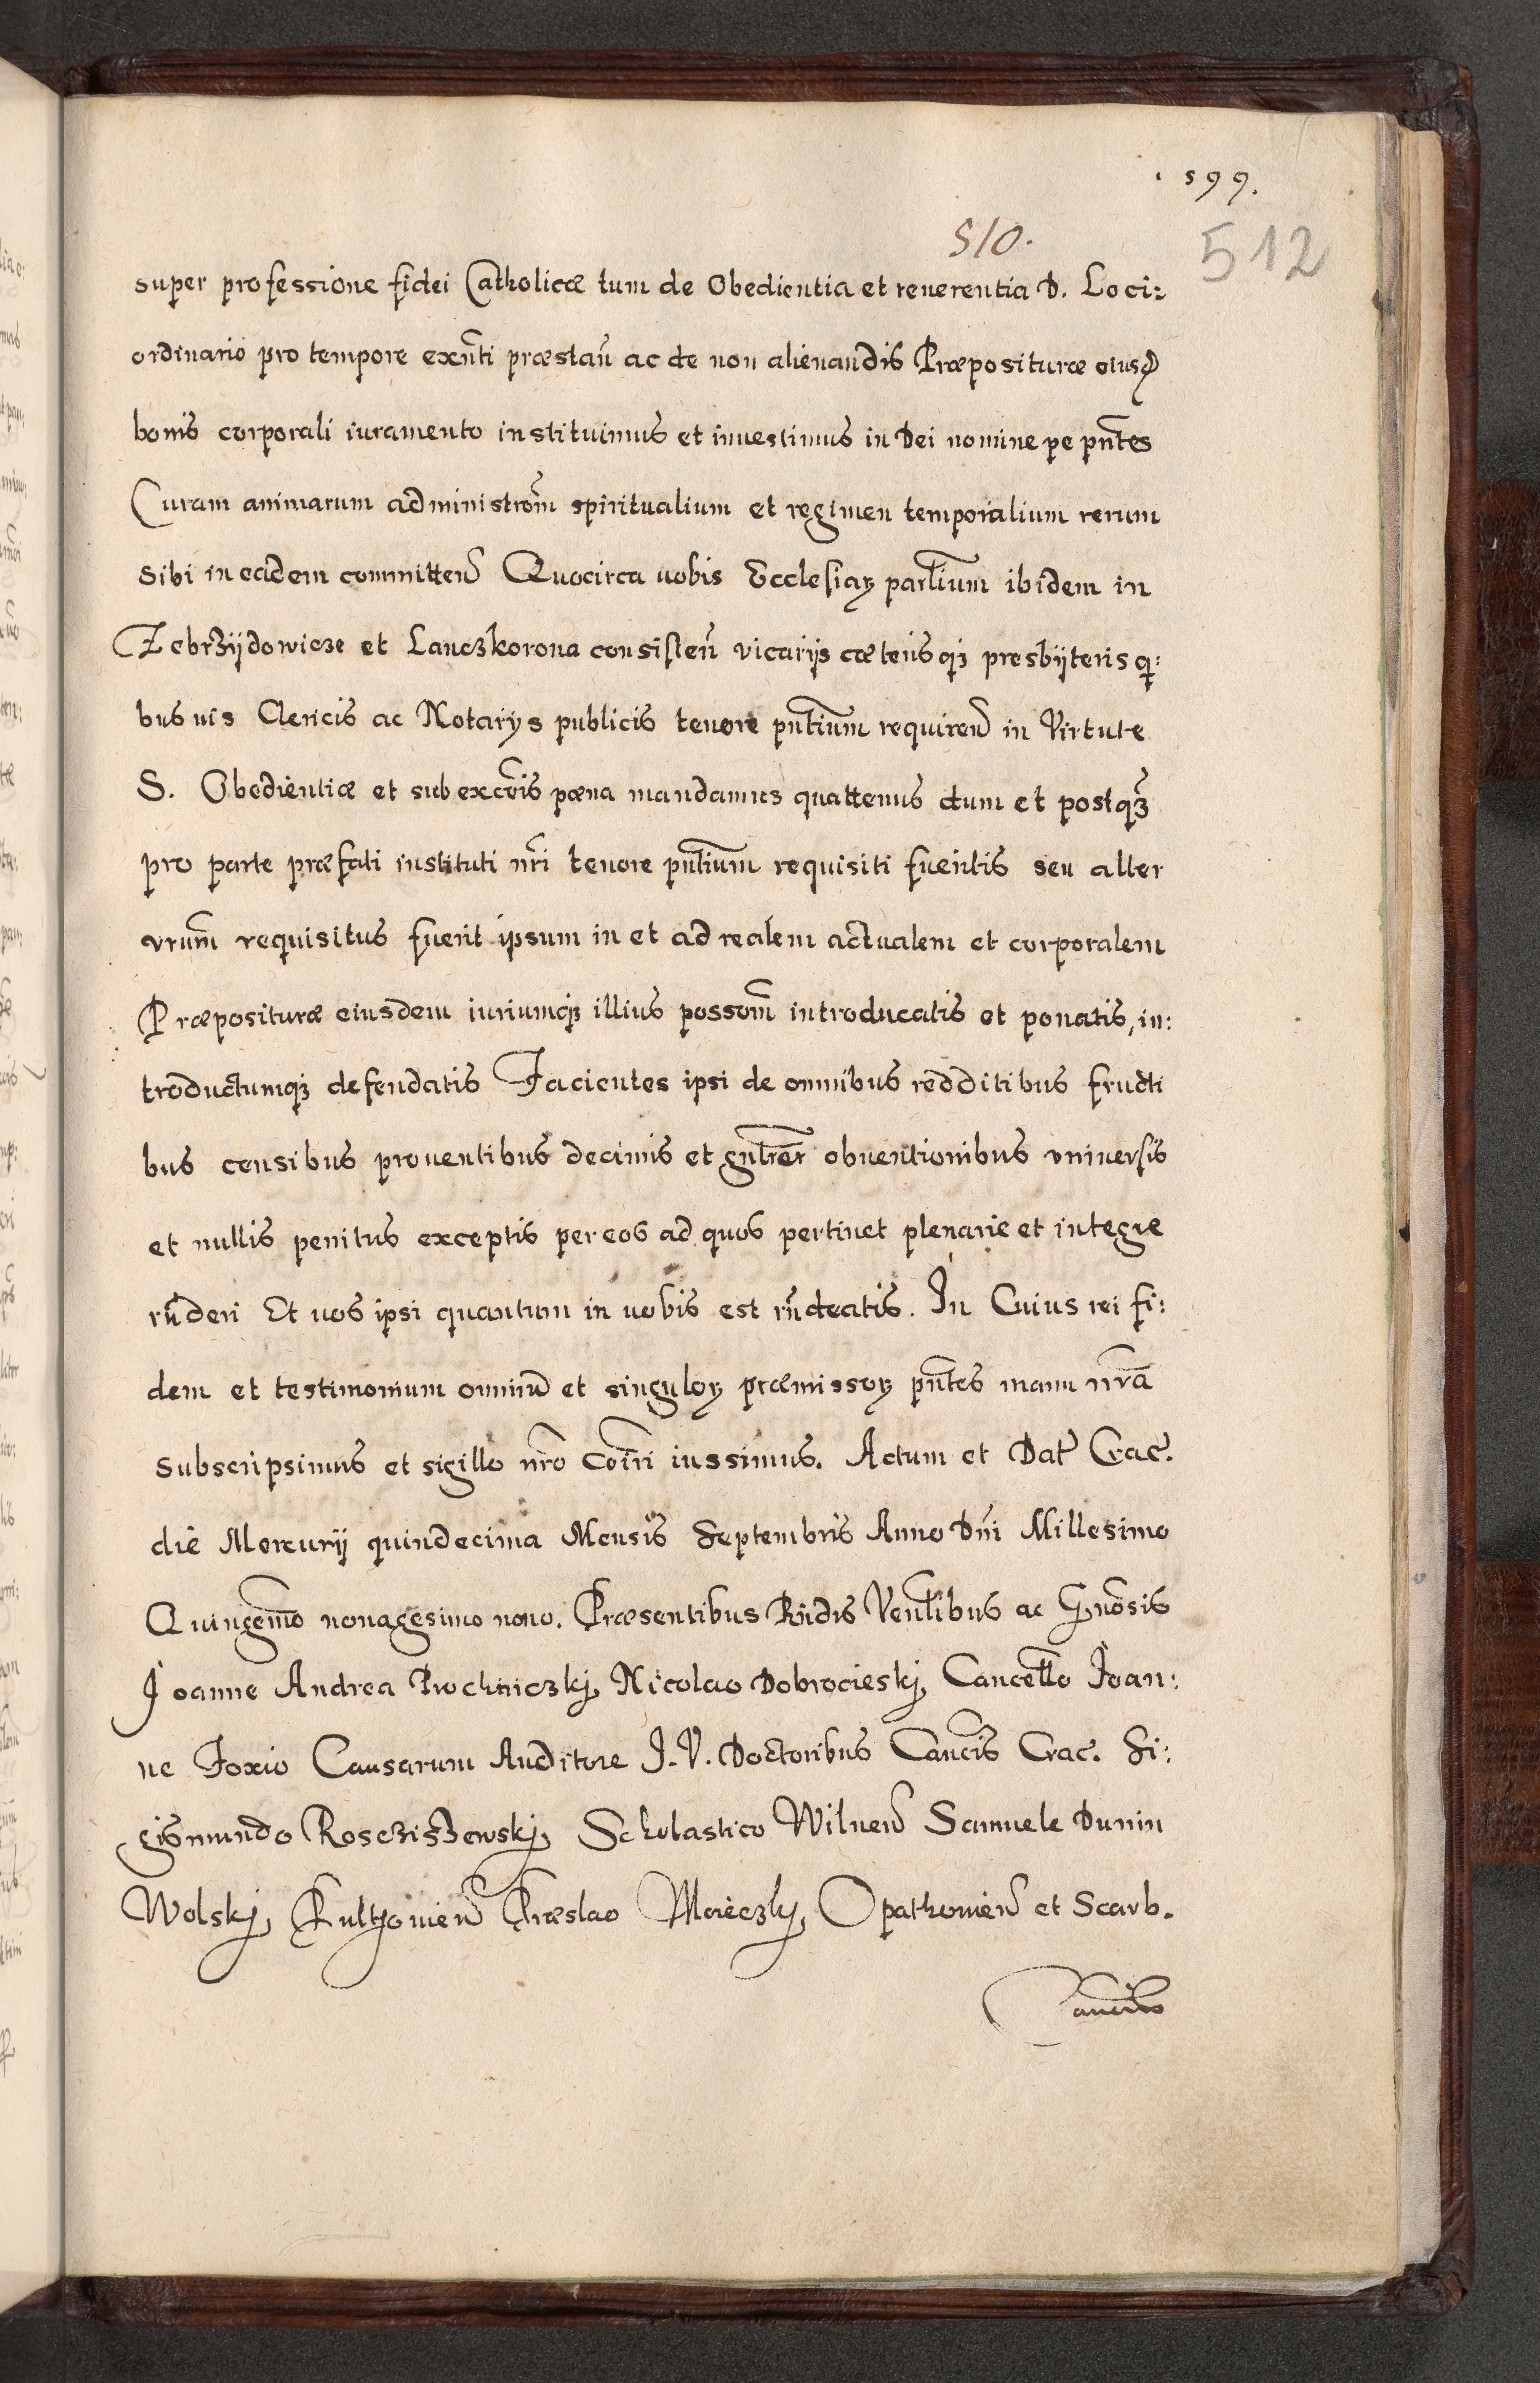 599.
510.
512
super professione fidei Catholicæ tum de Obedientia et reuerentia D. Loci:
ordinario pro tempore exñti præstañ ac de non alienandis Præposituræ eiusđ
bonis corporali iuramento instituimus et inuestimus in Dei nomine pe pñtes
Curam animarum administrõm spiritualium et regimen temporalium rerum
sibi in eadem committeñ Quocirca uobis Ecclesiaꝝ parlium ibidem in
Zebrzijdowicze et Lanczkorona consisteñ vicarijs cæterisqꝫ presbijteris q̃:
busuis Clericis ac Notarijs publicis tenore pñtium requireñ in Virtute
S. Obedientiæ et sub excõis pæna mandamus quattenus dum et postqꝫ̃
pro parte præfati instituti nr̃i tenore pñtium requisiti fueritis seu alter
vrũm requisitus fuerit ipsum in et ad realem actualem et corporalem
Præposituræ eiusdem iuriumqꝫ illius possom̃ introducatis et ponatis, in:
troductumqꝫ defendatis Facientes ipsi de omnibus redditibus fructi
bus censibus prouentibus decimis et gñlrẽr obuentionibus vniuersis
et nullis penitus exceptis per eos ad quos pertinet plenarie et integre
rñderi Et uos ipsi quantum in uobis est rñdeatis. In Cuius rei fi:
dem et testimonium omniũ et singuloꝝ præmissoꝝ pñtes manu nr̃a
subscripsimus et sigillo nr̃o cõiri iussimus. Actum et Dat̃ Crac̃.
die Mercurij quindecima Mensis Septembris Anno Dñi Millesimo
Quingem̃o nonagesimo nono. Præsentibus Rñdis Ven̄libus ac Gñosis
Joanne Andrea Prochniczkj, Nicolao Dobrocieskj, Cancell̃o Joan:
ne Foxio Causarum Auditore J. V. Doctoribus Canc̃is Crac̃. Si:
gismundo Rosczisʒewskj, Scholastico Wilneñ Samuele Dunin
Wolskj, Pultouieñ Præslao Moieczky, Opathouieñ et Scarb.